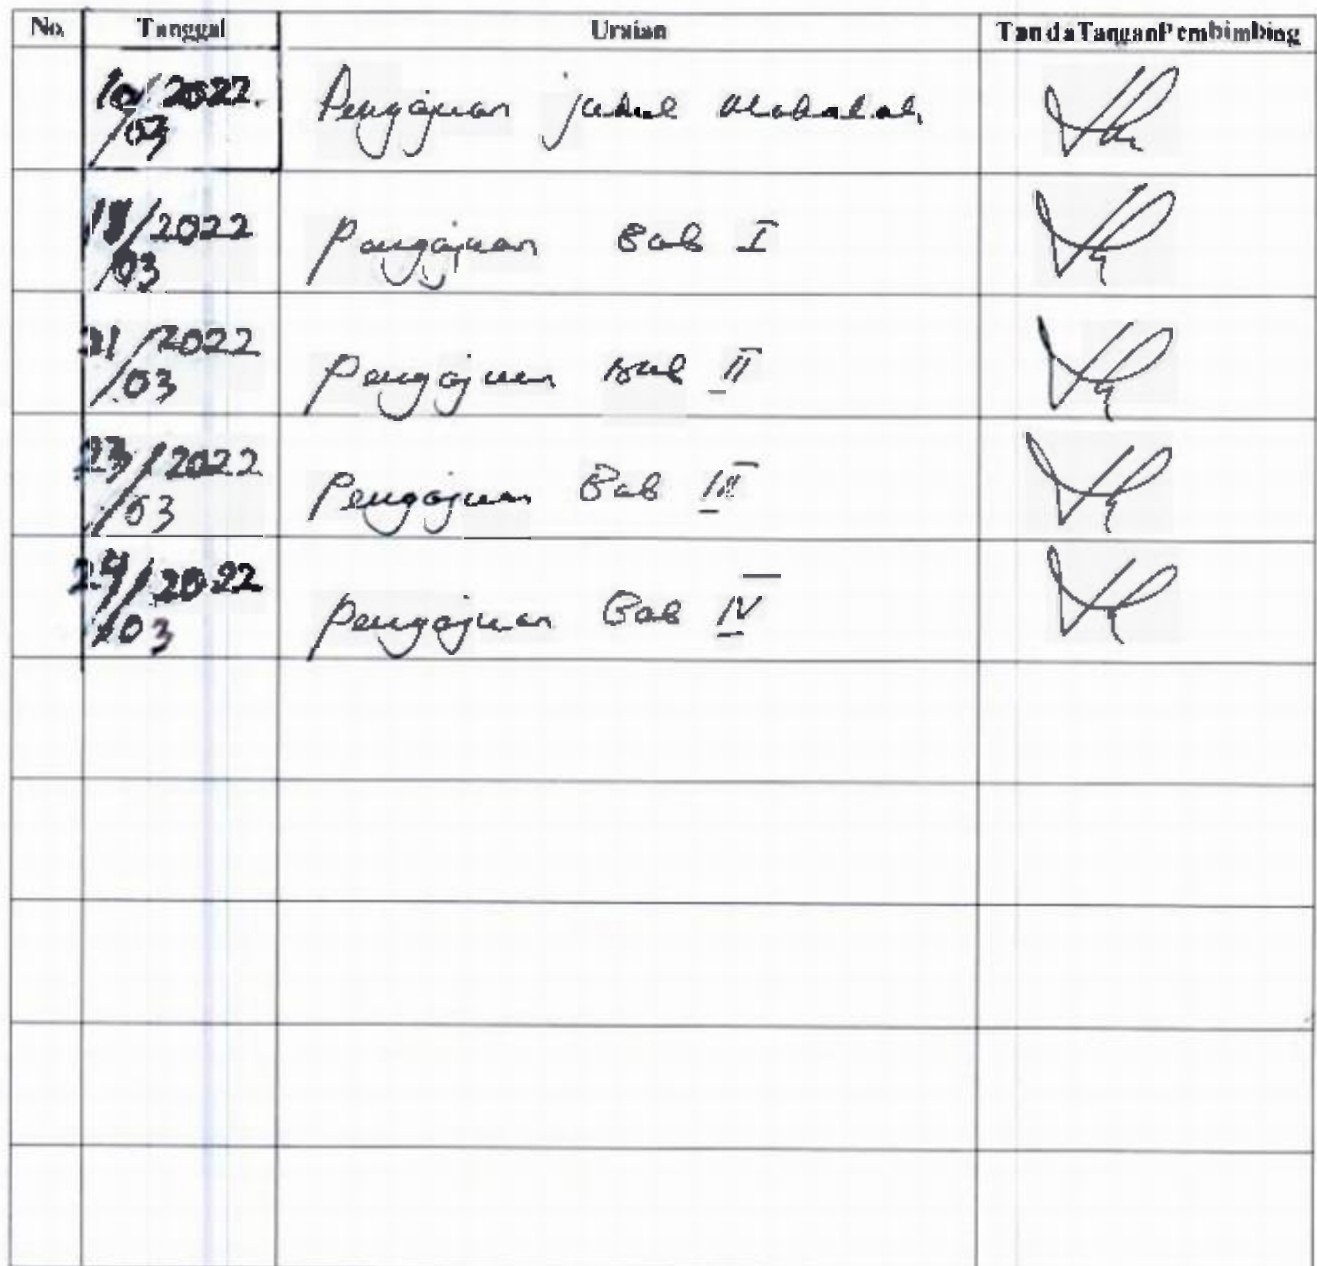 No. Tanggal Uraian Tanda Tangan Pembimbing
10/2022. Pengajuan judul Makalah
/03
/2022 Pengajuan Bab I
/03
/2022 Pengajuan Bab II
/03
23/2022 Pengajuan Bab III
/03
24/2022 Pengajuan Bab IV
/03